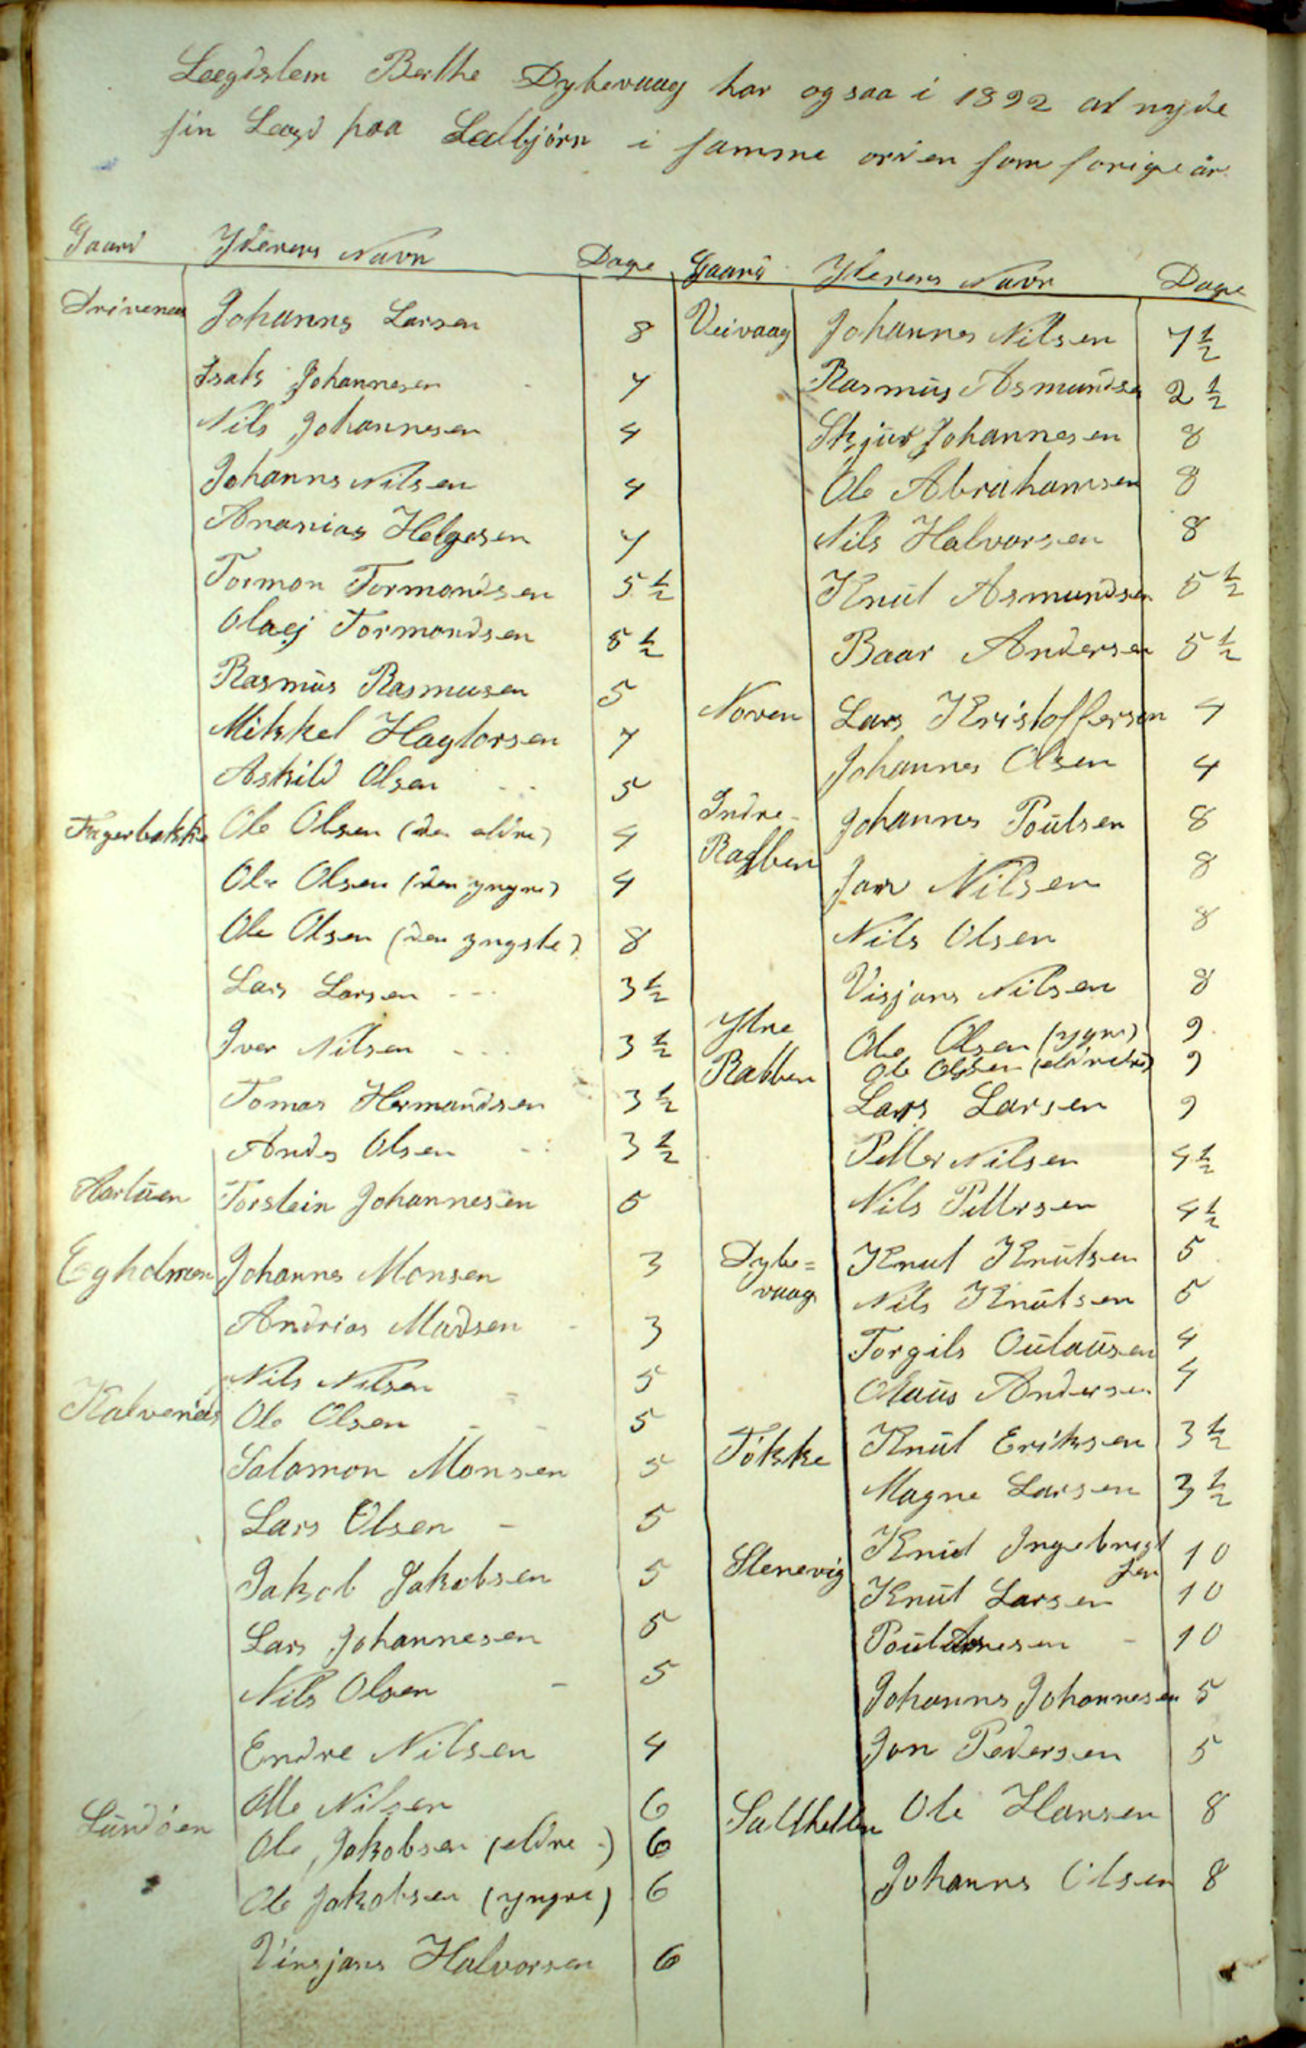 Lægdslem Berthe Dybevaag har ogsaa i 1892 at nyde
sin Lægd paa Lælbjörn i samme orden som forige år.
Gaard Yderens Navn Dage
Drivenes Johannes Larsen 8
Isak Johannesen 7
Nils Johannesen 4
Johanns Nilsen 4
Ananias Helgesen 7
Tormon Tormondsen 5 1/2
Olaej Tormondsen 5 1/2
Rasmus Rasmusen 5
Mikkel Hagtorsen 7
Askild Olsen 5
Fagerbakke Ole Olsen (den eldre) 4
Ole Olsen (den yngre) 4
Ole Olsen (den yngste) 8
Lars Larsen 3 1/2
Iver Nilsen 3 1/2
Tomas Hermandsen 3 1/2
Ands Olsen 3 1/2
Torstein Johannesen 5
Egholmen Johannes Monsen 3
Andrias Madsen 3
Nils Nilsen 5
Kalvenes Ole Olsen 5
Salomon Monsen 5
Lars Olsen 5
Jakob Jakobsen 5
Lars Johannesen 5
Nils Olsen 5
Endre Nilsen 4
Lundöen Olle Nilsen 6
Ole Jakobsen (eldre) 6
Ole Jakobsen (yngre) 6
Vinsjans Halvorsen 6
Gaard Yderens Navn Dage
Veivaag Johannes Nilsen 7 1/2
Rasmus Asmundsen 2 1/2
Skjur Johannesen 8
Ole Abrahamsen 8
Nils Halvorsen 8
Knut Asmundsen 5 1/2
Baar Andersen 5 1/2
Noven Lars Kristoffersen 4
Johannes Olsen 4
Indre- Johannes Poulsen 8
Rabben Jan Nilsen 8
Nils Olsen 8
Visjans Nilsen 8
Ytre Ole Olsen (yngre) 9
Rabben Ole Olsen 9
Lars Larsen 9
Petter Nilsen 4 1/2
Nils Pettersen 4 1/2
Dybe= Knut Knutsen 5
vaag Nils Knutsen 5
Torgils Oulausen 4
Olaus Andersen 4
Tökke Knut Eriksen 3 1/2
Magne Larsen 3 1/2
Stenevig Knut Ingebrigt 10
sen
Knut Larsen 10
Poul 10
Johanns Johannesen 5
Jon Pedersen 5
Salthellen Ole Hansen 8
Johanns Olsen 8